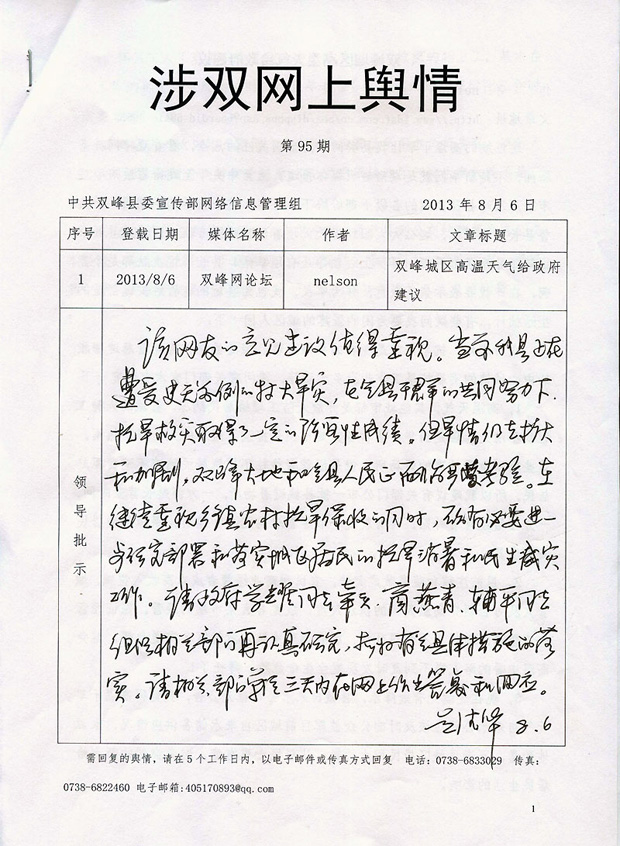 涉双网上舆情
第 95 期
中共双峰县委宣传部网络信息管理组 2013 年 8 月 6 日
序号 登载日期 媒体名称 作者 文章标题
1 2013/8/6 双峰网论坛 nelson 双峰城区高温天气给政府
建议
领导批示
该网友的意见建议值得重视。当前我县正在
遭受史无前例的特大旱灾,在全县干群的共同努力下,
抗旱救灾取得了一定的阶段性成绩。但旱情仍在扩大
和加剧,双峰大地和全县人民正面临严峻考验。在
继续重视乡镇农村抗旱保收的同时,确有必要进一
步研究部署和落实城区居民的抗旱消暑和民生减灾
工作。请政府学 同志牵头,商燕青、辅平同志
组织相关部门再认真研究,抓好有关具体措施的落
实。请相关部门于三天内在网上作出答复和回应。
8.6
需回复的舆情,请在 5 个工作日内,以电子邮件或传真方式回复 电话: 0738-6833029 传真:
0738-6822460 电子邮箱:405170893@qq.com
1